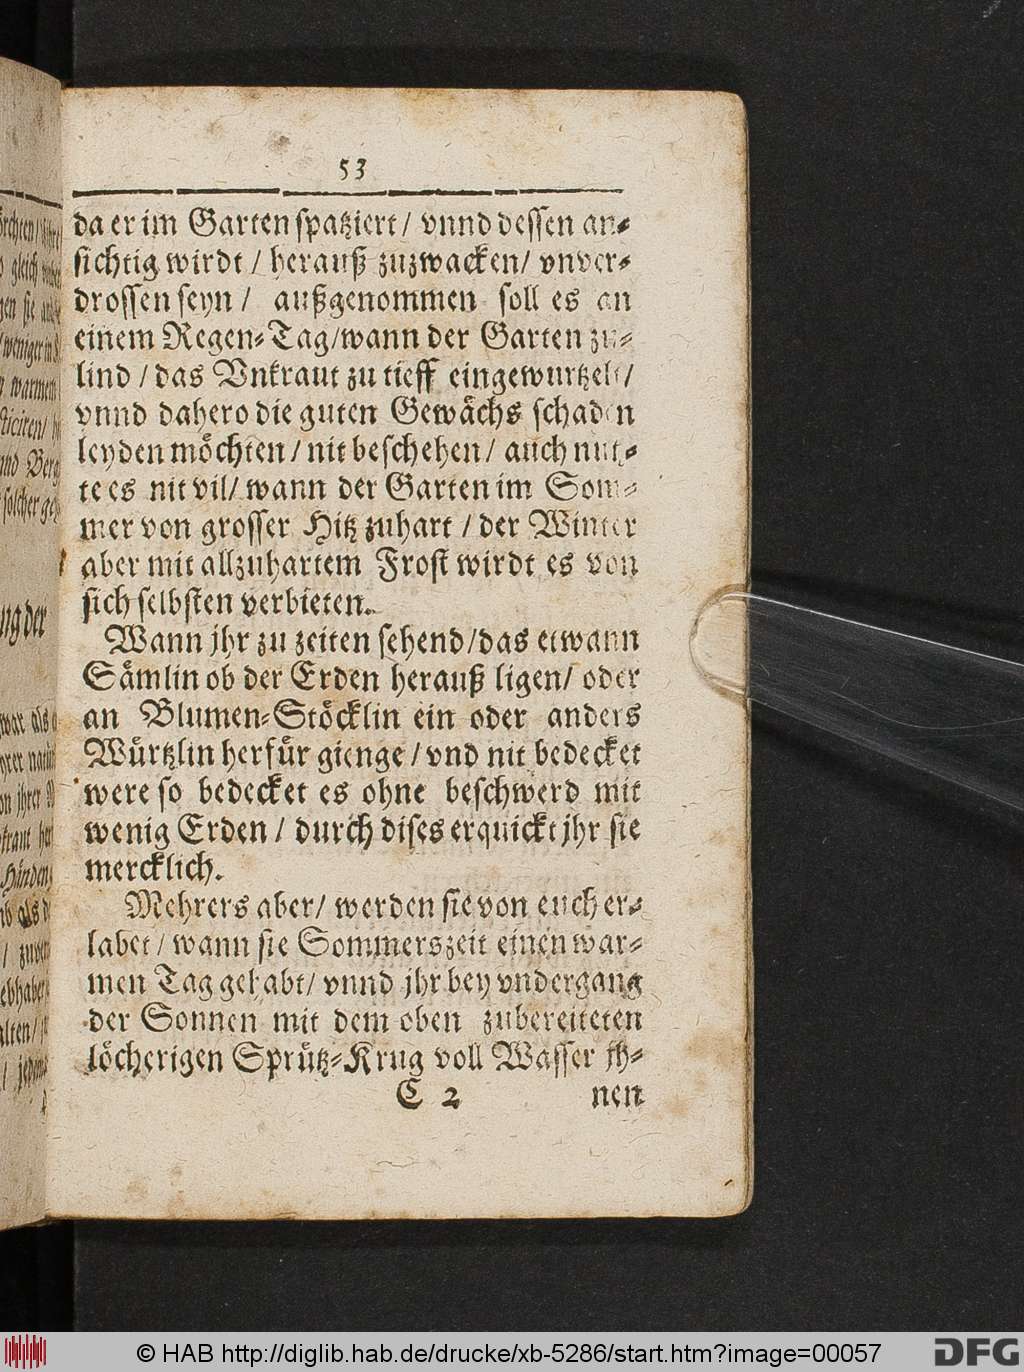 53
da er im Garten spatziert / vnnd dessen an-
sichtig wirdt / herauß zuzwacken / vnver-
drossen seyn / außgenommen soll es an
einem Regen-Tag / wann der Garten zu-
lind / das Vnkraut zu tieff eingewurtzelt /
vnnd dahero die guten Gewächs schaden
leyden möchten / nit beschehen / auch nutz-
te es nit vil / wann der Garten im Som-
mer von grosser Hitz zuhart / der Winter
aber mit allzuhartem Frost wirdt es von
sich selbsten verbieten.
Wann jhr zu zeiten sehend / das etwann
Sämlin ob der Erden herauß ligen / oder
an Blumen-Stöcklin ein oder anders
Würtzlin herfür gienge / vnd nit bedecket
were so bedecket es ohne beschwerd mit
wenig Erden / durch dises erquickt jhr sie
mercklich.
Mehrers aber / werden sie von euch er-
labet / wann sie Sommerszeit einen war-
men Tag gehabt / vnnd jhr bey vndergang
der Sonnen mit dem oben zubereiteten
löcherigen Sprütz-Krug voll Wasser jh-
C 2 nen
© HAB http://diglib.hab.de/drucke/xb-5286/start.htm?image=00057
DFG